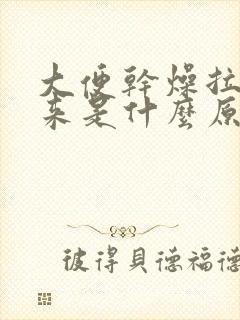 大便幹燥拉
来是什麼原
彼得貝德福德